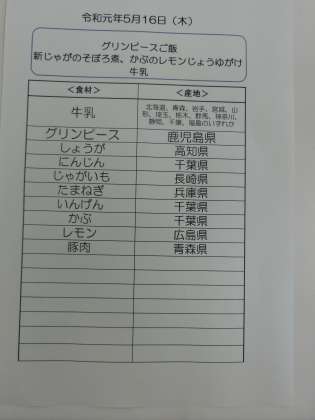 令和元年5月16日（木）
グリンピースご飯
新じゃがのそぼろ煮、かぶのレモンじょうゆがけ
牛乳
＜食材＞ ＜産地＞
牛乳 北海道、青森、岩手、宮城、山
形、埼玉、栃木、群馬、神奈川、
静岡、千葉、福島のいずれか
グリンピース 鹿児島県
しょうが 高知県
にんじん 千葉県
じゃがいも 長崎県
たまねぎ 兵庫県
いんげん 千葉県
かぶ 千葉県
レモン 広島県
豚肉 青森県